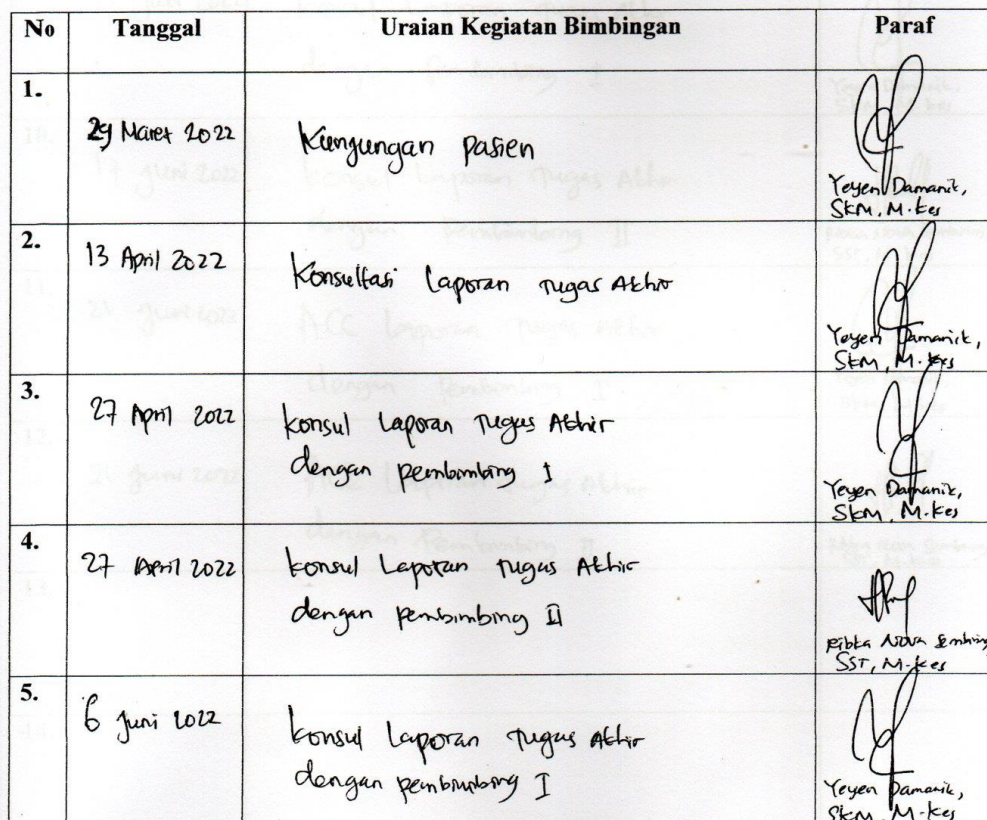 No Tanggal Uraian Kegiatan Bimbingan Paraf
1.
29 Maret 2022 Kunjungan pasien
Yeyen Damanik,
SKM, M.Kes
2.
13 April 2022 Konsultasi Laporan Tugas Akhir
Yeyen Damanik,
SKM, M.Kes
3.
27 April 2022 konsul Laporan Tugas Akhir
dengan pembimbing I
Yeyen Damanik,
SKM, M.Kes
4.
27 April 2022 konsul Laporan Tugas Akhir
dengan pembimbing II
Ribka Nova Sembiring
SST, M.Kes
5.
6 Juni 2022 konsul Laporan Tugas Akhir
dengan pembimbing I
Yeyen Damanik,
SKM, M.Kes